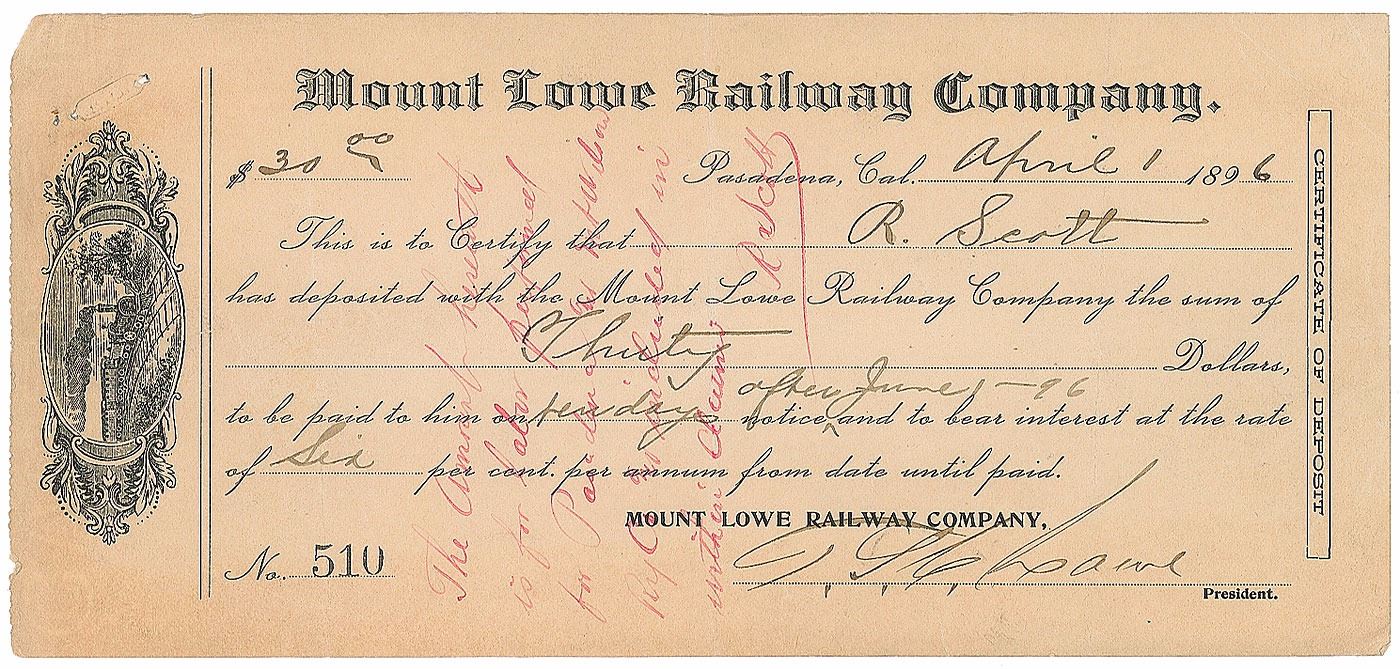 Mount Lowe Railway Company.
$ 30 00 Pasadena, Cal. April 1 1896
This is to Certify that R. Scott
has deposited with the Mount Lowe Railway Company the sum of
Thirty Dollars,
after June 1-96
to be paid to him on ten days notice and to bear interest at the rate
of Six per cent. per annum from date until paid.
MOUNT LOWE RAILWAY COMPANY,
No. 510 T. S. C. Lowe
President.
CERTIFICATE OF DEPOSIT
The Amount herewith
is for labor performed
for Pasadena & Mt Wilson
Ry Co & included in
within claim
R Scott